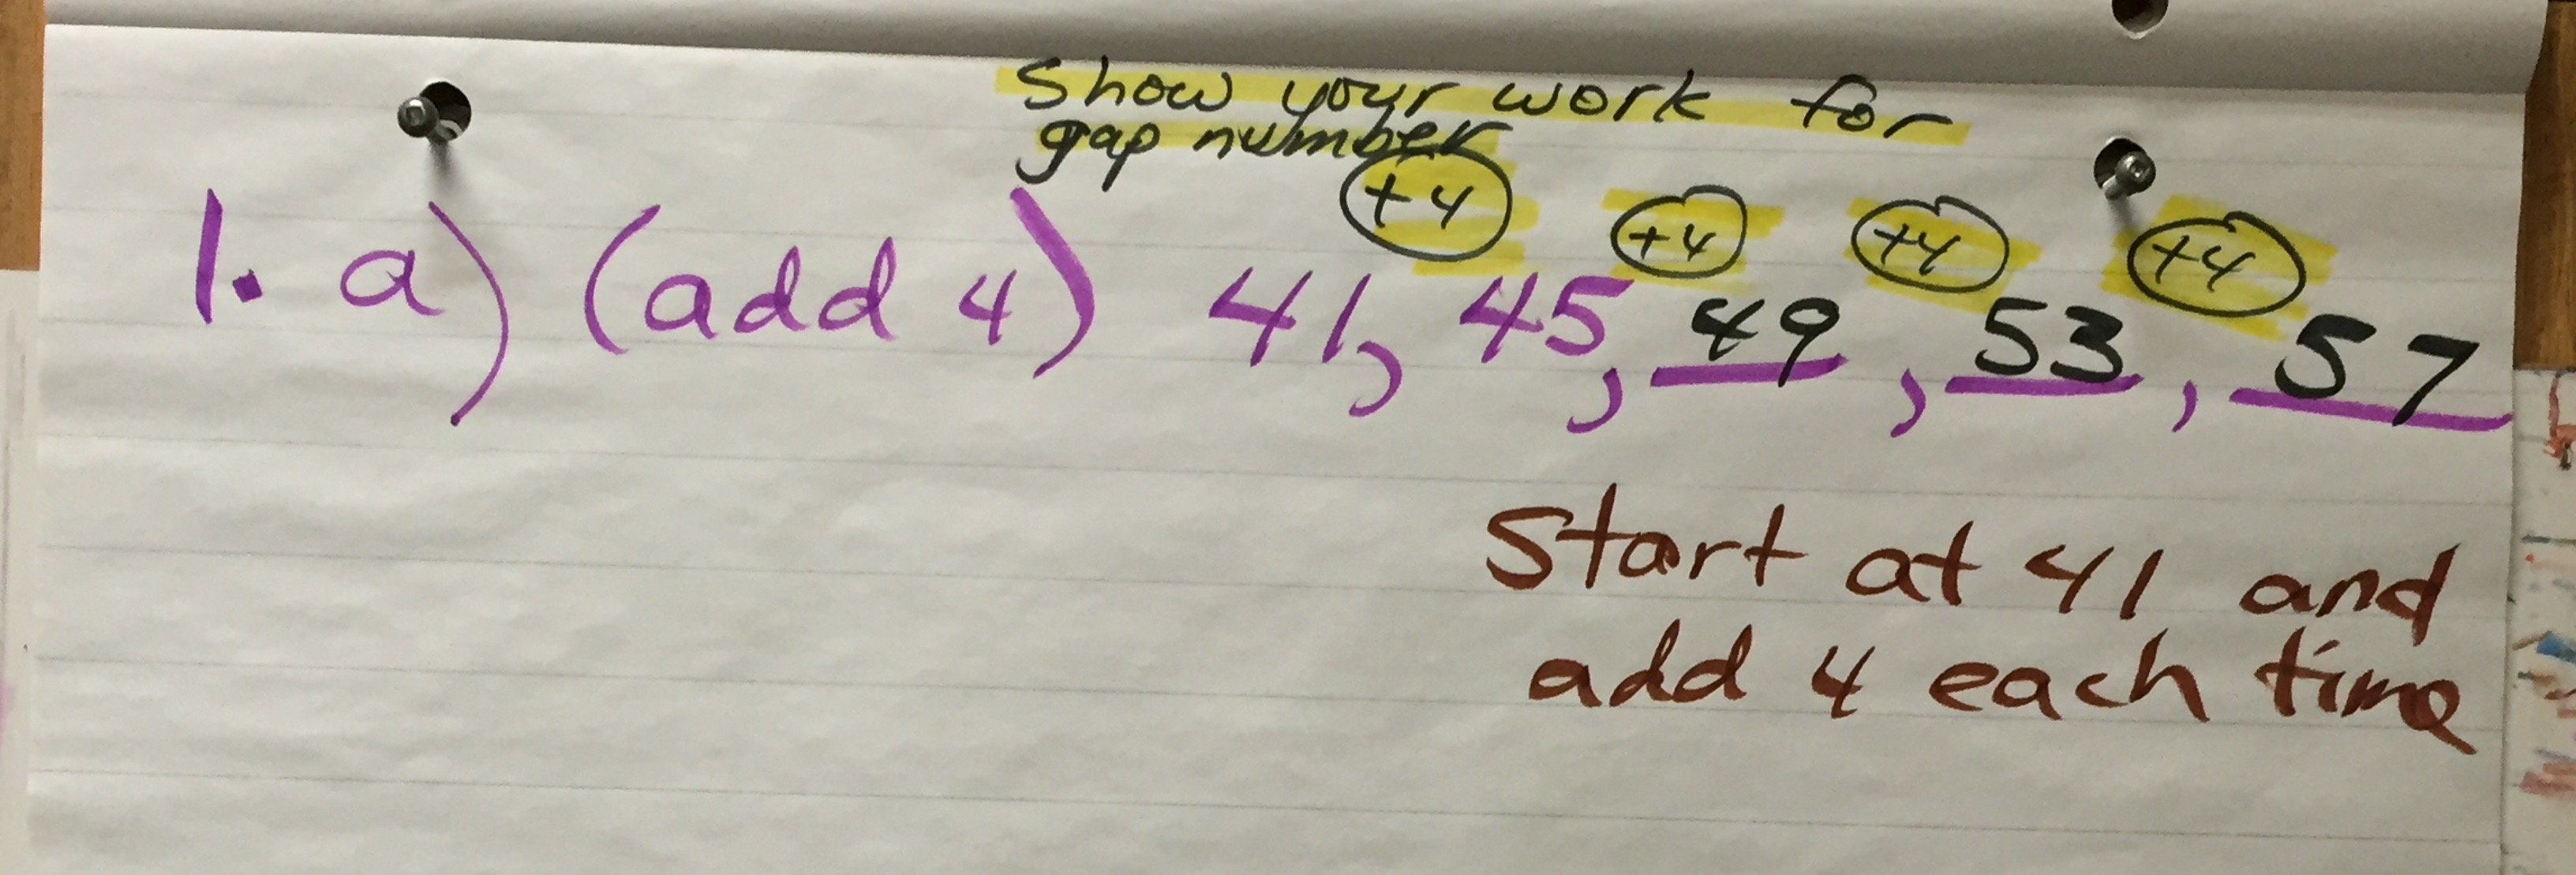 Show your work for
gap number
+4 +4 +4 +4
1. a) (add 4) 41, 45, 49, 53, 57
Start at 41 and
add 4 each time